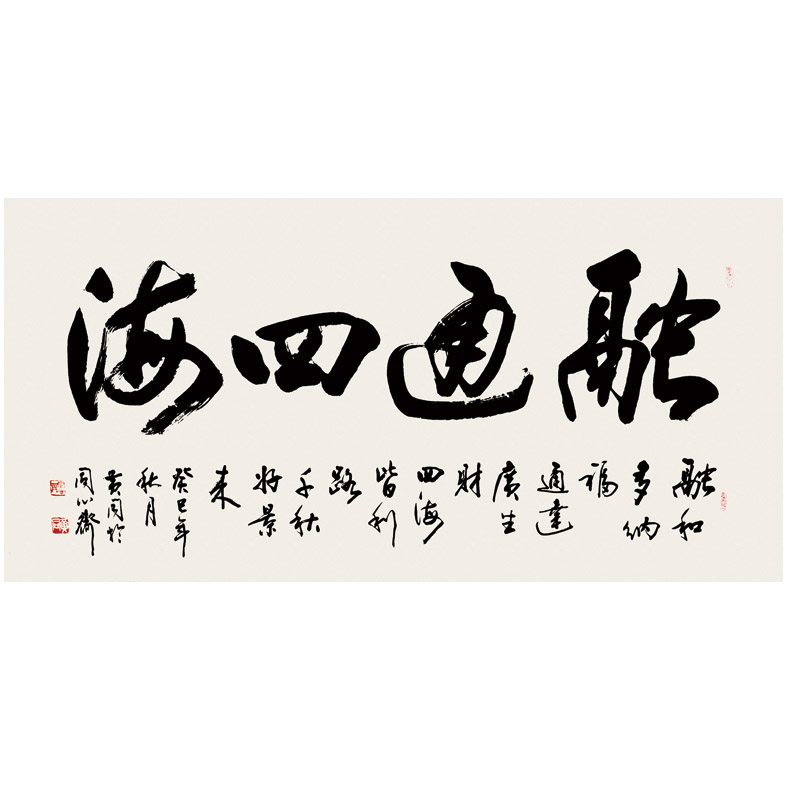 融通四海
融和
多納
福
通達
廣生
財
四海
皆利
路
千秋
好景
来
癸巳年
秋月
黄同於
同心齋